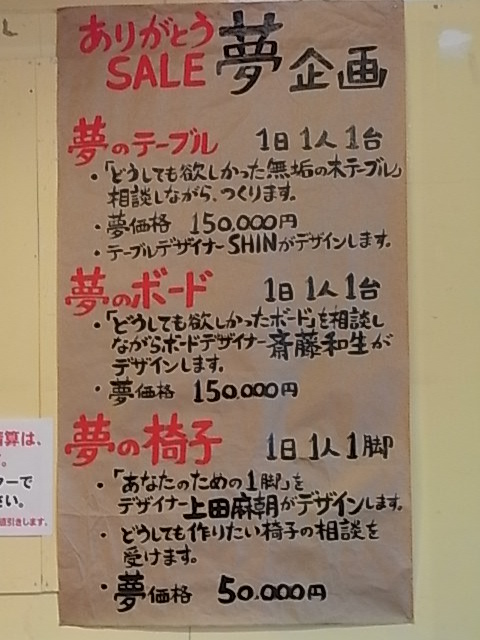 ありがとう
SALE 夢企画
夢のテーブル 1日1人1台
・「どうしても欲しかった無垢の木テーブル」
相談しながら、つくります。
・夢価格 150.000円
・テーブルデザイナーSHINがデザインします。
夢のボード 1日1人1台
・「どうしても欲しかったボード」を相談し
ながらボードデザイナー斎藤和生が
デザインします。
・夢価格 150.000円
夢の椅子 1日1人1脚
・「あなたのための1脚」を
デザイナー上田麻朝がデザインします。
・どうしても作りたい椅子の相談を
受けます。
・夢価格 50.000円
算は、
。
ーで
さい。
値引きします。